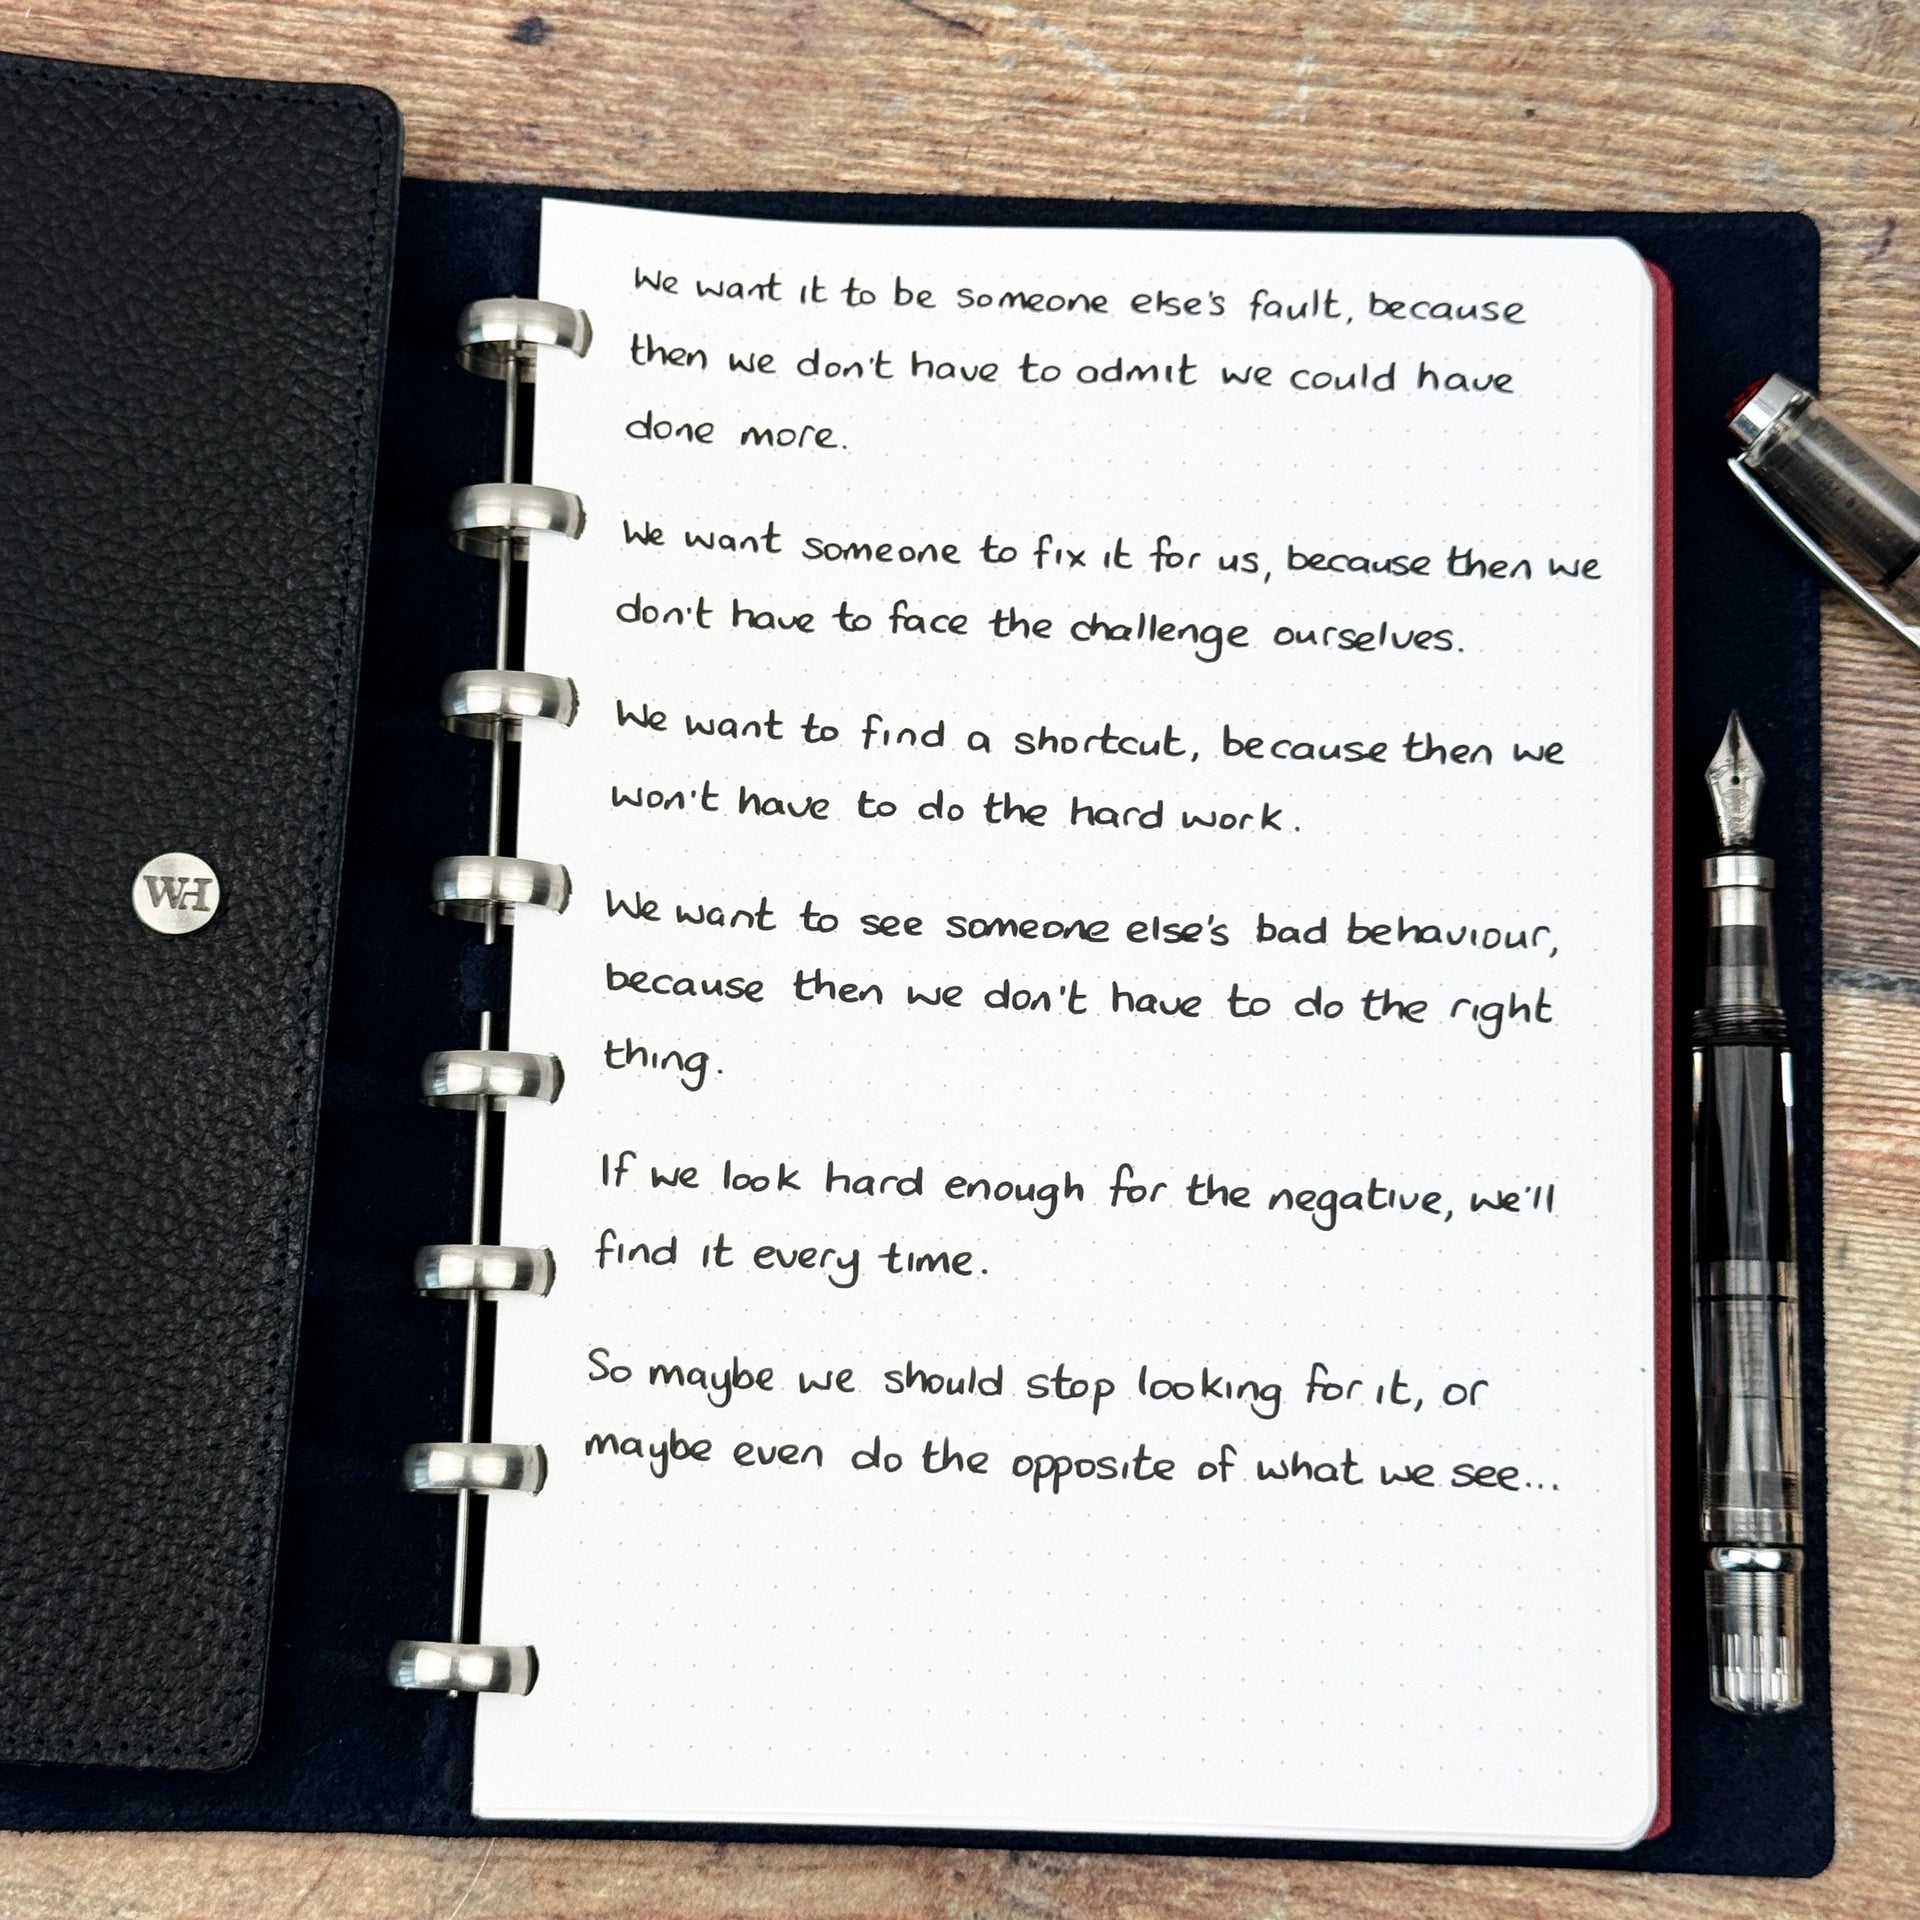 We want it to be someone else's fault, because
then we don't have to admit we could have
done more.
We want someone to fix it for us, because then we
don't have to face the challenge ourselves.
We want to find a shortcut, because then we
won't have to do the hard work.
We want to see someone else's bad behaviour,
because then we don't have to do the right
thing.
If we look hard enough for the negative, we'll
find it every time.
So maybe we should stop looking for it, or
maybe even do the opposite of what we see...
WH